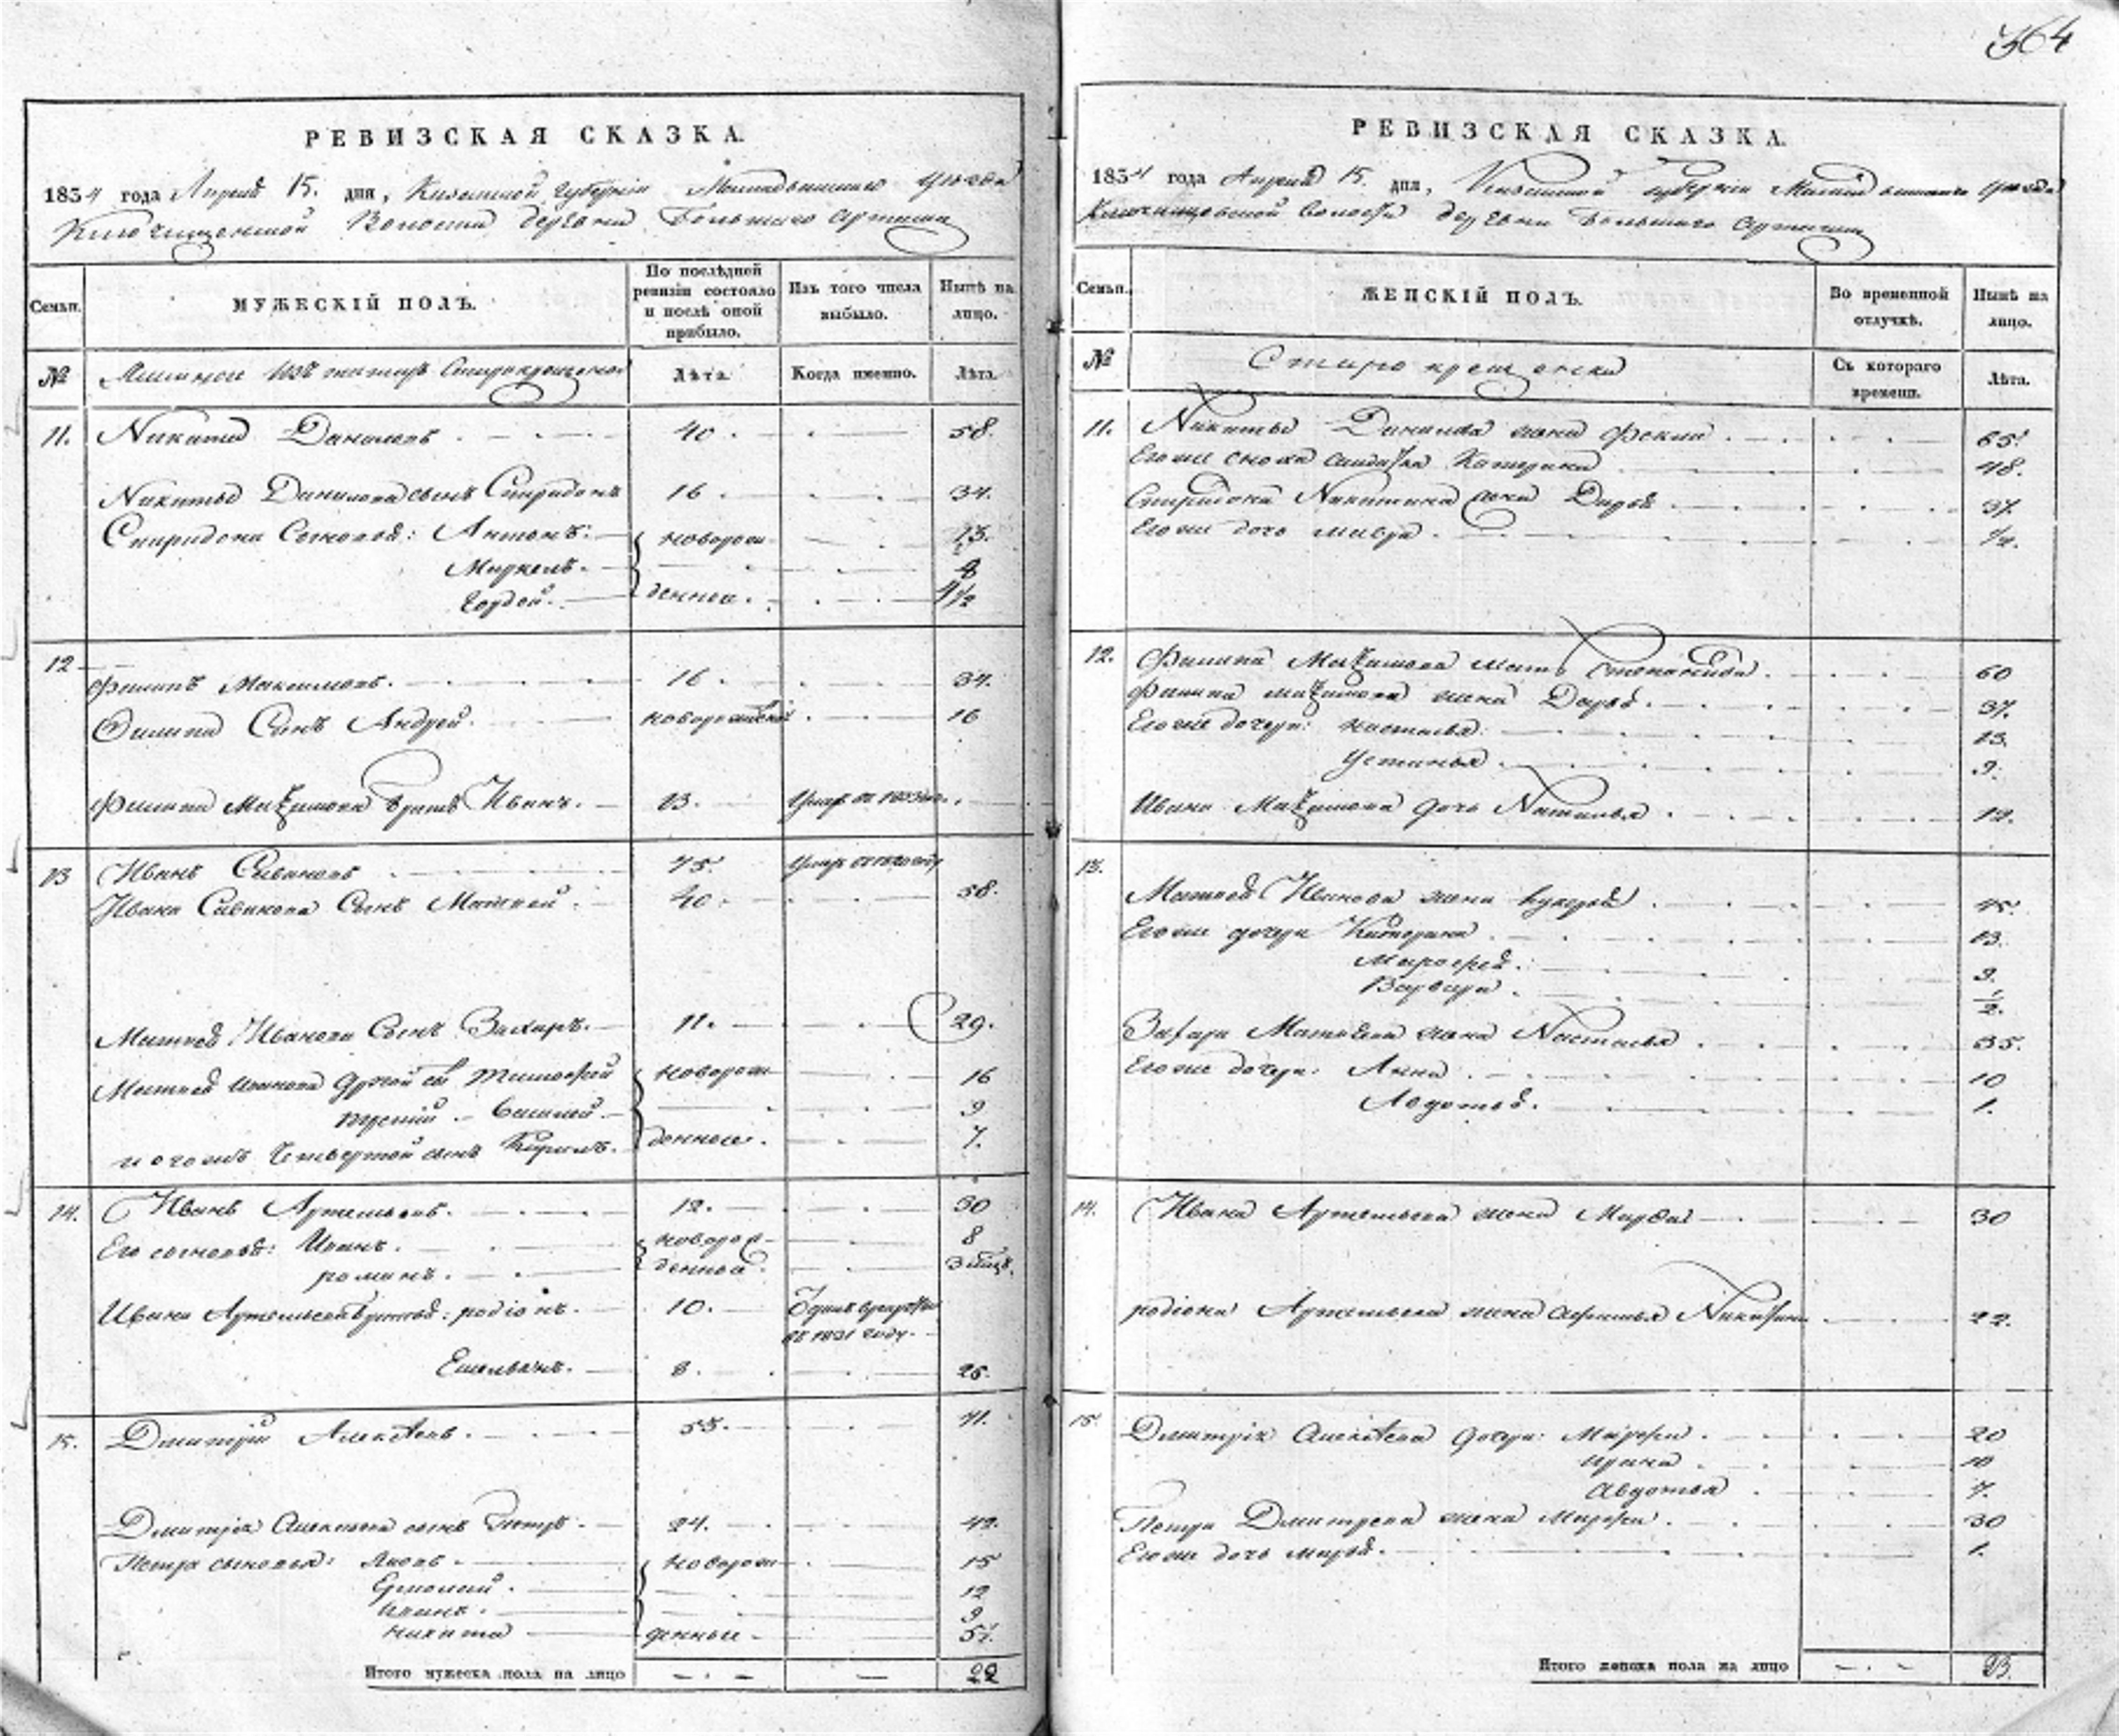 364
РЕВИЗСКАЯ СКАЗКА.
1834 года Апреля 15. дня, Казанской губернiи Мамадышского уезда
Ключищенской Волости деревни Большаго Артыша
Семьи.
МУЖЕСКIЙ ПОЛЪ.
По послѣдней ревизiи состояло и послѣ оной прибыло.
Изъ того числа выбыло.
Нынѣ на лицо.
№
изъ татаръ Старокрещеной
Лѣта.
Когда именно.
Лѣта.
11. Никита Даниловъ 40. 58.
Никиты Данилова сынъ Спиридонъ 16. 34.
Спиридона Сыновья: Антонъ. новорож 13.
Маркелъ.
Гордей. денные. 1/2
12 Филипъ Максимовъ. 16. 34.
Филипа Сынъ Андрей. новорожденой 16
Филипа Максимова братъ Иванъ. 13. Умеръ въ
13 Иванъ Савиновъ 75. Умеръ въ
Ивана Савинова Сынъ Матвей. 40. 58.
Матвея Иванова Сынъ Захаръ. 11. 29.
Матвея Иванова другой сынъ Тимофей новорож 16
третiй Василей. 9
и его жъ Четвертой сынъ Кирилъ. денные. 7.
14. Иванъ Артемьевъ. 12. 30
Его сыновья: Иванъ. новорож 8
романъ. денные. 3 мѣсц.
Ивана Артемьева братья: родiонъ. 10. въ 1831 году.
Емельянъ. 8. 26.
15. Дмитрiй Алексѣевъ. 53. 71.
Дмитрiя Алексѣева сынъ Петръ. 24. 42.
Петра сыновья: Яковъ. новорож 15
Ермолай. 12
Иванъ. 9
Никита денные 5 1/2
Итого мужеска пола на лицо 22
РЕВИЗСКАЯ СКАЗКА.
1834 года Апреля 15. дня, Казанской губернiи Мамадышского уезда
Ключищевской Волости деревни Большаго Артыша
Семьи.
ЖЕНСКIЙ ПОЛЪ.
Во временной отлучкѣ.
Нынѣ на лицо.
№
Старо крещенска
Съ котораго времени.
Лѣта.
11. Никиты Данилова жена Фекла 65.
Его же сноха солдатка Катерина 48.
Спиридона Никитина жена Дарья 37.
Его же дочь
12. Филипа Максимова мать Степанида. 60
Филипа Максимова жена Дарья. 37.
Его же дочери: Настасья. 13.
Устинья. 9.
Ивана Максимова дочь Наталья 12.
13.
Матвея Иванова жена 45.
Его же дочери Катерина 13.
Марфа. 9.
Варвара. 1/2.
Захара Матвеева жена Настасья 35.
Его же дочери: Анна 10
Авдотья. 1.
14. Ивана Артемьева жена Марфа 30
родiона Артемьева жена Никитина 22.
15. Дмитрiя Алексѣева дочери: Марфа. 20
Ирина 10
Авдотья 7.
Петра Дмитреева жена Марфа. 30
Его же дочь Марья. 1.
Итого женска пола на лицо 23.